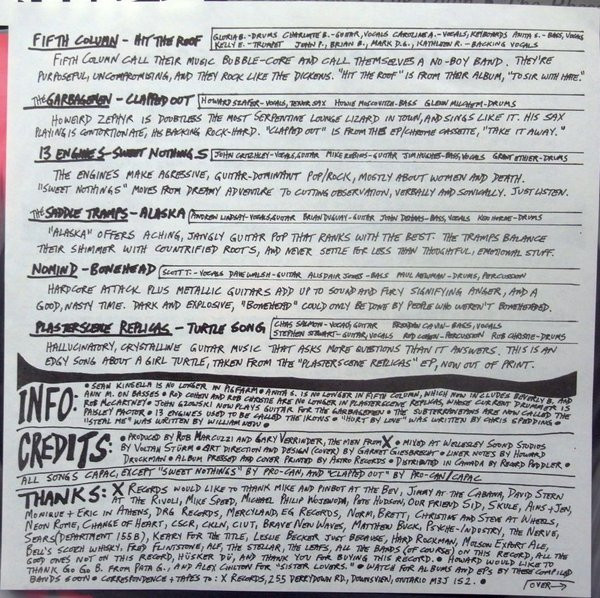 FIFTH COLUMN - HIT THE ROOF GLORIA B.-DRUMS CHARLOTTE B.-GUITAR, VOCALS CAROLINE A.-VOCALS, KEYBOARDS ANITA S.-BASS, VOCALS
KELLY E.-TRUMPET JOHN P., BRIAN B., MARK D.G., KATHLEEN R.-BACKING VOCALS
FIFTH COLUMN CALL THEIR MUSIC BOBBLE-CORE AND CALL THEMSELVES A NO-BOY BAND. THEY'RE
PURPOSEFUL, UNCOMPROMISING, AND THEY ROCK LIKE THE DICKENS. "HIT THE ROOF" IS FROM THEIR ALBUM, "TO SIR WITH HATE."
THE GARBAGEMEN - CLAPPED OUT HOWARD SZAFER-VOCALS, TENOR SAX HOWIE MOSCOVITCH-BASS GLENN MILCHEM-DRUMS
HOWEIRD ZEPHYR IS DOUBTLESS THE MOST SERPENTINE LOUNGE LIZARD IN TOWN, AND SINGS LIKE IT. HIS SAX
PLAYING IS CONTORTIONATE, HIS BACKING ROCK-HARD. "CLAPPED OUT" IS FROM THE EP/CHROME CASSETTE, "TAKE IT AWAY."
13 ENGINES - SWEET NOTHINGS JOHN CRITCHLEY-VOCALS, GUITAR MIKE ROBBINS-GUITAR JIM HUGHES-BASS, VOCALS GRANT ETHIER-DRUMS
THE ENGINES MAKE AGRESSIVE, GUITAR-DOMINANT POP/ROCK, MOSTLY ABOUT WOMEN AND DEATH.
"SWEET NOTHINGS" MOVES FROM DREAMY ADVENTURE TO CUTTING OBSERVATION, VERBALLY AND SONICALLY. JUST LISTEN.
THE SADDLE TRAMPS - ALASKA ANDREW LINDSAY-VOCALS, GUITAR BRIAN DUGUAY-GUITAR JOHN DEHAAS-BASS, VOCALS KEN HORNE-DRUMS
"ALASKA" OFFERS ACHING, JANGLY GUITAR POP THAT RANKS WITH THE BEST. THE TRAMPS BALANCE
THEIR SHIMMER WITH COUNTRIFIED ROOTS, AND NEVER SETTLE FOR LESS THAN THOUGHTFUL, EMOTIONAL STUFF.
NOMIND - BONEHEAD SCOTT T.-VOCALS DAVE WALSH-GUITAR ALISDAIR JONES-BASS PAUL NEWMAN-DRUMS, PERCUSSION
HARDCORE ATTACK PLUS METALLIC GUITARS ADD UP TO SOUND AND FURY SIGNIFYING ANGER, AND A
GOOD, NASTY TIME. DARK AND EXPLOSIVE, "BONEHEAD" COULD ONLY BE DONE BY PEOPLE WHO WEREN'T BONEHEADED.
PLASTERSCENE REPLICAS - TURTLE SONG CHAS SALMON-VOCALS, GUITAR BRENDAN CAVIN-BASS, VOCALS
STEPHEN STEWART-GUITAR, VOCALS ROD COHEN-PERCUSSION ROB CHRISTIE-DRUMS
HALLUCINATORY, CRYSTALLINE GUITAR MUSIC THAT ASKS MORE QUESTIONS THAN IT ANSWERS. THIS IS AN
EDGY SONG ABOUT A GIRL TURTLE, TAKEN FROM THE "PLASTERSCENE REPLICAS" EP, NOW OUT OF PRINT.
INFO: • SEAN KINSELLA IS NO LONGER IN PIGFARM • ANITA S. IS NO LONGER IN FIFTH COLUMN, WHICH NOW INCLUDES BEVERLY B. AND
ANN M. ON BASSES • ROD COHEN AND ROB CHRISTIE ARE NO LONGER IN PLASTERSCENE REPLICAS, WHOSE CURRENT DRUMMER IS
ROB McCARTNEY • JOHN GZANSKI NOW PLAYS GUITAR FOR THE GARBAGEMEN • THE SUBTERRANEANS ARE NOW CALLED THE
PAISLEY FACTOR • 13 ENGINES USED TO BE CALLED THE IKONS • "HURT BY LOVE" WAS WRITTEN BY CHRIS SPEDDING •
"STEAL ME" WAS WRITTEN BY WILLIAM NEW •
CREDITS: • PRODUCED BY ROB MARCUZZI AND GARY VERRINDER, THE MEN FROM X • MIXED AT WELLESLEY SOUND STUDIOS
BY VOLTAN STURM • ART DIRECTION AND DESIGN (COVER) BY GARNET GIESBRECHT • LINER NOTES BY HOWARD
DRUCKMAN • ALBUM PRESSED AND COVER PRINTED BY ASTRO RECORDS • DISTRIBUTED IN CANADA BY RECORD PEDDLER •
ALL SONGS CAPAC, EXCEPT "SWEET NOTHINGS" BY PRO-CAN, AND "CLAPPED OUT" BY PRO-CAN/CAPAC
THANKS: X RECORDS WOULD LIKE TO THANK MIKE AND PINBOT AT THE BEV, JIMMY AT THE CABANA, DAVID STERN
AT THE RIVOLI, MIKE SPEED, MICHAEL PHILIP WOJEWODA, PETE HUDSON, OUR FRIEND SID, SKULE, AIMS + JEN,
MONIQUE + ERIC IN ATHENS, DRG RECORDS, MERCYLAND, EG RECORDS, NORM, BRETT, CHRISTINE AND STEVE AT WHEELS,
NEON ROME, CHANGE OF HEART, CSCR, CKLN, CIUT, BRAVE NEW WAVES, MATTHEW BUCK, PSYCHE-INDUSTRY, THE NERVE,
SEARS (DEPARTMENT 155B), KEARY FOR THE TITLE, LESLIE BECKER JUST BECAUSE, HARD ROCKMAN, MOLSON EXPORT ALE,
BELL'S SCOTCH WHISKY, FRED FLINTSTONE, ALF, THE STELLAR, THE LEAFS, ALL THE BANDS (OF COURSE) ON THIS RECORD, ALL THE
GOOD ONES NOT ON THIS RECORD, HÜSKER DÜ, AND THANK YOU FOR BUYING THIS RECORD. • HOWARD WOULD LIKE TO
THANK GO GO B. FROM PATA G., AND ALEX CHILTON FOR "SISTER LOVERS." • WATCH FOR ALBUMS AND EPS BY THESE COMPILED
BANDS SOON • CORRESPONDENCE + TAPES TO: X RECORDS, 255 DERRYDOWN RD, DOWNSVIEW, ONTARIO M3J 1S2. •
OVER →